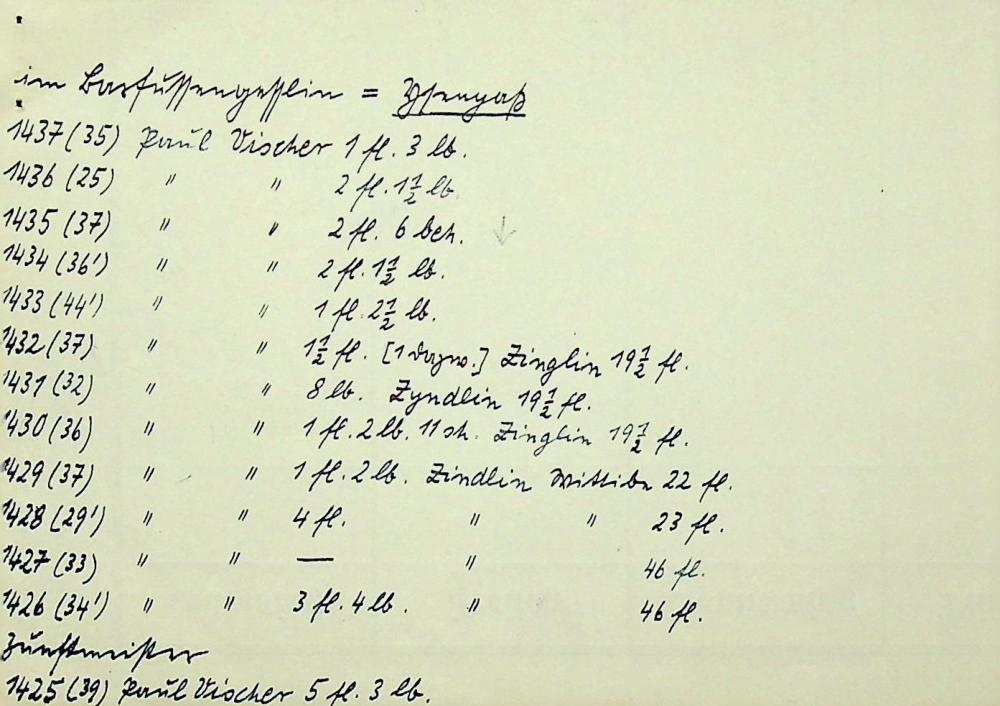 im Barfussengesslin = Ysengaß
1437 (35) Paul Vischer 1 fl. 3 lb.
1436 (25) " " 2 fl. 1½ lb.
1435 (37) " " 2 fl. 6 beh.
1434 (36') " " 2 fl. 1½ lb.
1433 (44') " " 1 fl. 2½ lb.
1432 (37) " " 1½ fl. [1 ] Zinglin 19½ fl.
1431 (32) " " 8 lb. Zyndlin 19½ fl.
1430 (36) " " 1 fl. 2 lb. 11 sh. Zinglin 19½ fl.
1429 (37) " " 1 fl. 2 lb. Zindlin Wittibe 22 fl.
1428 (29') " " 4 fl. " " 23 fl.
1427 (33) " " — " 46 fl.
1426 (34') " " 3 fl. 4 lb. " 46 fl.
Zunftmeister
1425 (39) Paul Vischer 5 fl. 3 lb.